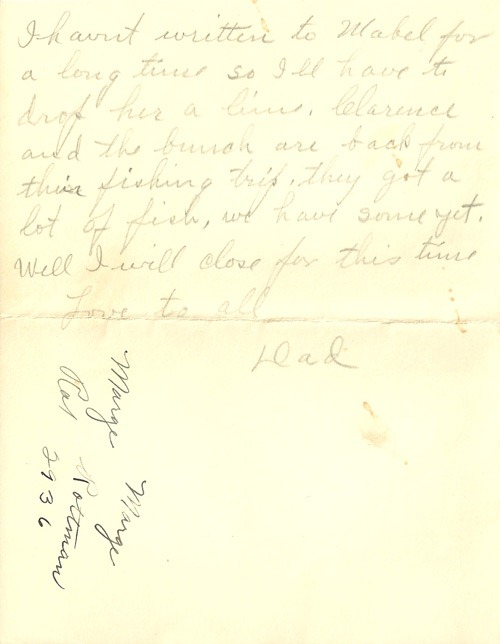 I havnt written to Mabel for
a long time so Ill have to
drop her a line. Clarence
and the bunch are back from
thier fishing trip. they got a
lot of fish, we have some yet.
Well I will close for this time
Love to all
Dad
Marge Marge
Rottman
2936